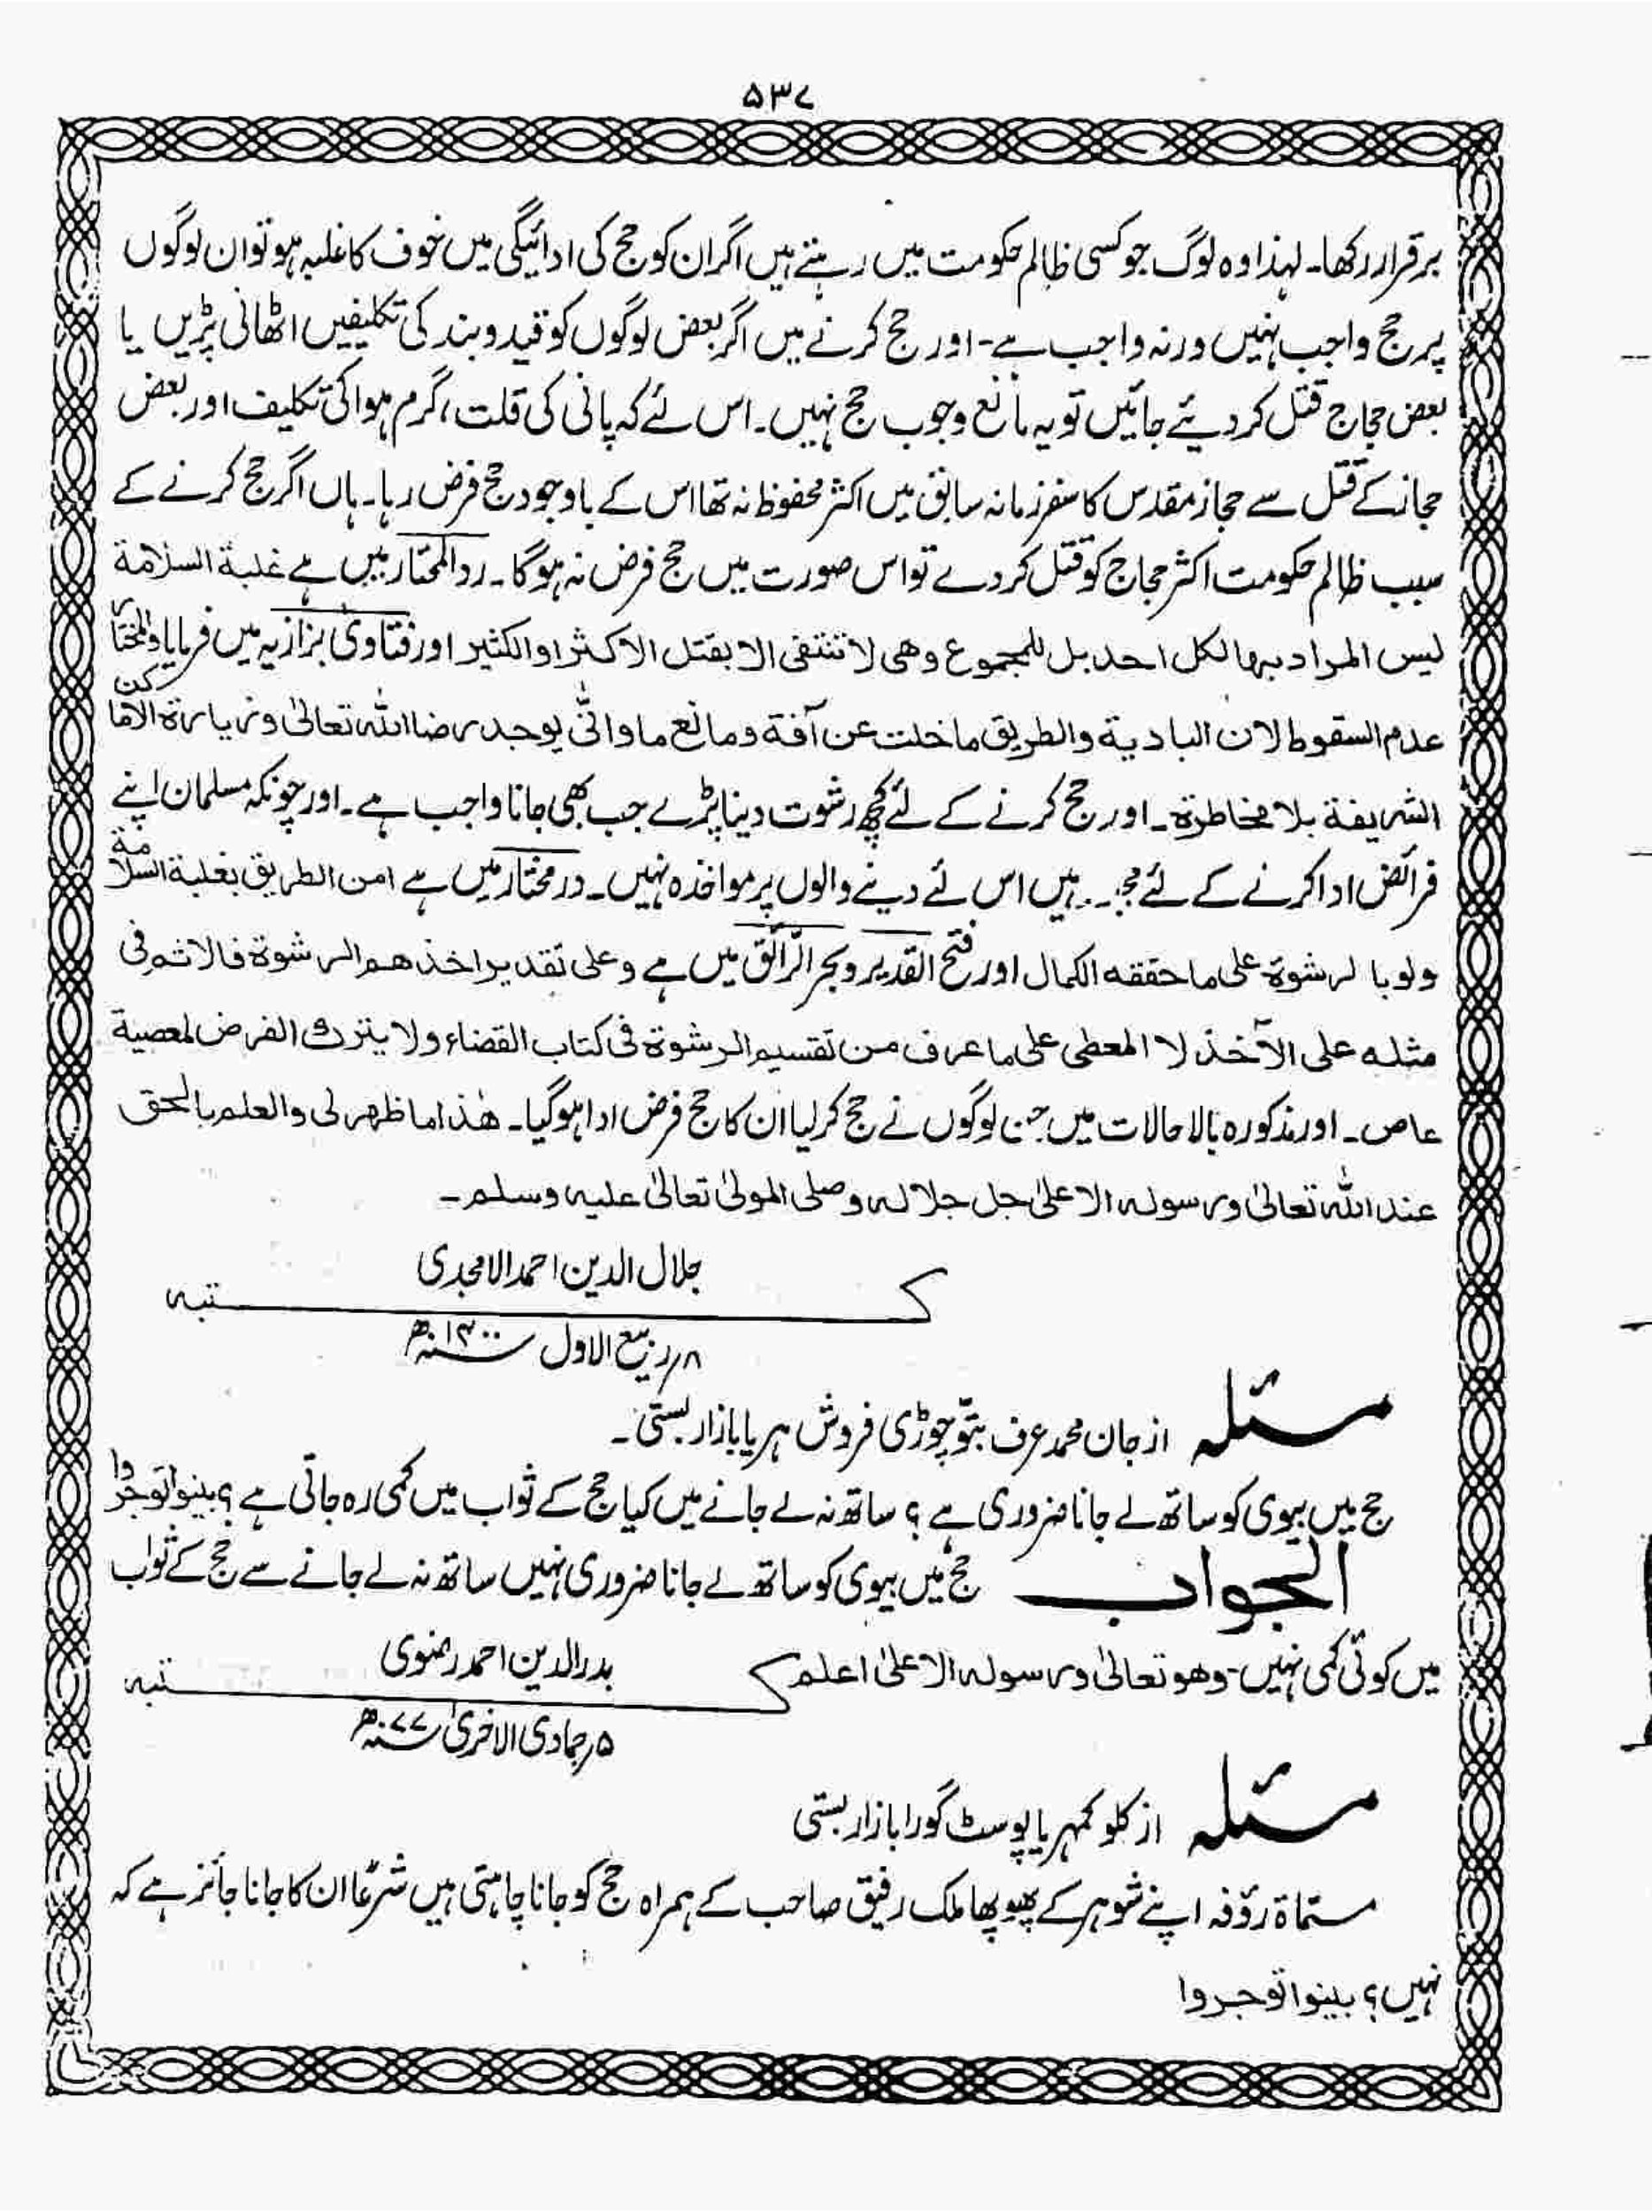 ۵۳۷
برقرار رکھا۔ لہذا وہ لوگ جو کسی ظالم حکومت میں رہتے ہیں اگر ان کو حج کی ادائیگی میں خوف کا غلبہ ہو تو ان لوگوں
پر حج واجب نہیں ورنہ واجب ہے۔ اور حج کرنے میں اگر بعض لوگوں کو قید و بند کی تکلیفیں اٹھانی پڑیں یا
بعض حجاج قتل کر دیئے جائیں تو یہ مانع وجوب حج نہیں۔ اس لئے کہ پانی کی قلت، گرم ہوا کی تکلیف اور بعض
حجاز کے قتل سے حجاز مقدس کا سفر زمانہ سابق میں اکثر محفوظ نہ تھا اس کے باوجود حج فرض رہا۔ ہاں اگر حج کرنے کے
سبب ظالم حکومت اکثر حجاج کو قتل کر دے تو اس صورت میں حج فرض نہ ہوگا۔ ردالمحتار میں ہے غلبة السلامة
لیس المراد بها لکل احد بل للمجموع وهی لا تنتفی الا بقتل الاکثر او الکثیر اور فتاویٰ بزازیہ میں فرمایا والمختار
عدم السقوط لان البادیة والطریق ما خلت عن آفة ومانع ما وانّٰی یوجد رضا اللہ تعالیٰ وزیارة الاماکن
الشریفة بلا مخاطرة۔ اور حج کرنے کے لئے کچھ رشوت دینا پڑے جب بھی جانا واجب ہے۔ اور چونکہ مسلمان اپنے
فرائض ادا کرنے کے لئے ہیں اس لئے دینے والوں پر مواخذہ نہیں۔ درمختار میں ہے امن الطریق بغلبة السلامة
ولو بالرشوة علی ما حققه الکمال اور فتح القدیر و بحر الرائق میں ہے وعلی تقدیر اخذهم الرشوة فالاثم فی
مثله علی الآخذ لا المعطی علی ما عرف من تقسیم الرشوة فی کتاب القضاء ولا یترك الفرض لمعصیة
عاص۔ اور مذکورہ بالا حالات میں جن لوگوں نے حج کر لیا ان کا حج فرض ادا ہوگیا۔ هٰذا ما ظهر لی والعلم بالحق
عند اللہ تعالیٰ ورسوله الاعلیٰ جل جلاله وصلی المولیٰ تعالیٰ علیه وسلم۔
جلال الدین احمد الامجدی
کتبہ
۸ ربیع الاول سنہ ۱۴۰۰ھ
مسئلہ از جان محمد عرف بتّو چوڑی فروش ہریا بازار بستی۔
حج میں بیوی کو ساتھ لے جانا ضروری ہے؟ ساتھ نہ لے جانے میں کیا حج کے ثواب میں کمی رہ جاتی ہے؟ بینوا توجروا
الجواب حج میں بیوی کو ساتھ لے جانا ضروری نہیں ساتھ نہ لے جانے سے حج کے ثواب
میں کوئی کمی نہیں۔ وهو تعالیٰ ورسوله الاعلیٰ اعلم
بدرالدین احمد رضوی
کتبہ
۵ جمادی الاخریٰ سنہ ۷۷ھ
مسئلہ از کلو کمہریا پوسٹ گورا بازار بستی
مسماۃ رؤفہ اپنے شوہر کے پھوپھا ملک رفیق صاحب کے ہمراہ حج کو جانا چاہتی ہیں شرعًا ان کا جانا جائز ہے کہ
نہیں؟ بینوا توجروا